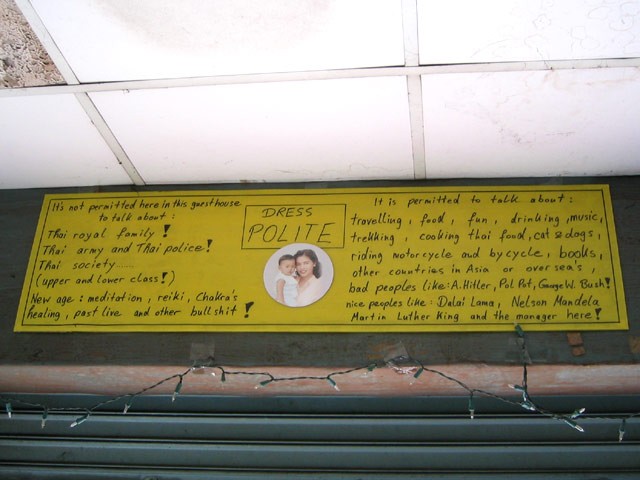 It's not permitted here in this guesthouse
to talk about :
Thai royal family !
Thai army and Thai police!
Thai society......
(upper and lower class!)
New age : meditation , reiki , Chakra's
healing , past live and other bullshit !
DRESS
POLITE
It is permitted to talk about :
travelling , food , fun , drinking , music,
trekking , cooking thai food, cat & dogs ,
riding motorcycle and bycycle , books,
other countries in Asia or over sea's ,
bad peoples like: A. Hitler, Pol Pot, George W. Bush!
nice peoples like : Dalai Lama , Nelson Mandela
Martin Luther King and the manager here !